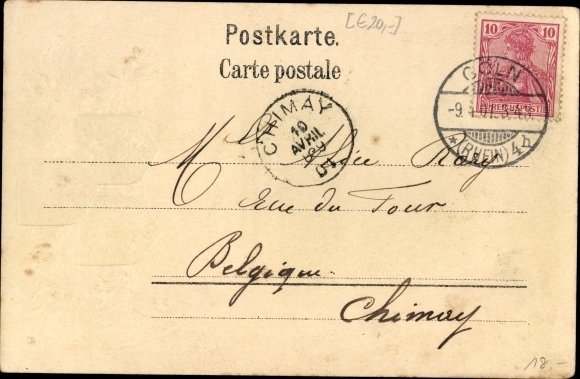 [€20,-]
Postkarte.
Carte postale
10
REICHSPOST
CÖLN
-9.4.01
* (RHEIN) 4 h
CHIMAY
10
AVRIL
01
Mlle Alice
Rue du Four
Belgique.
Chimay
18.-